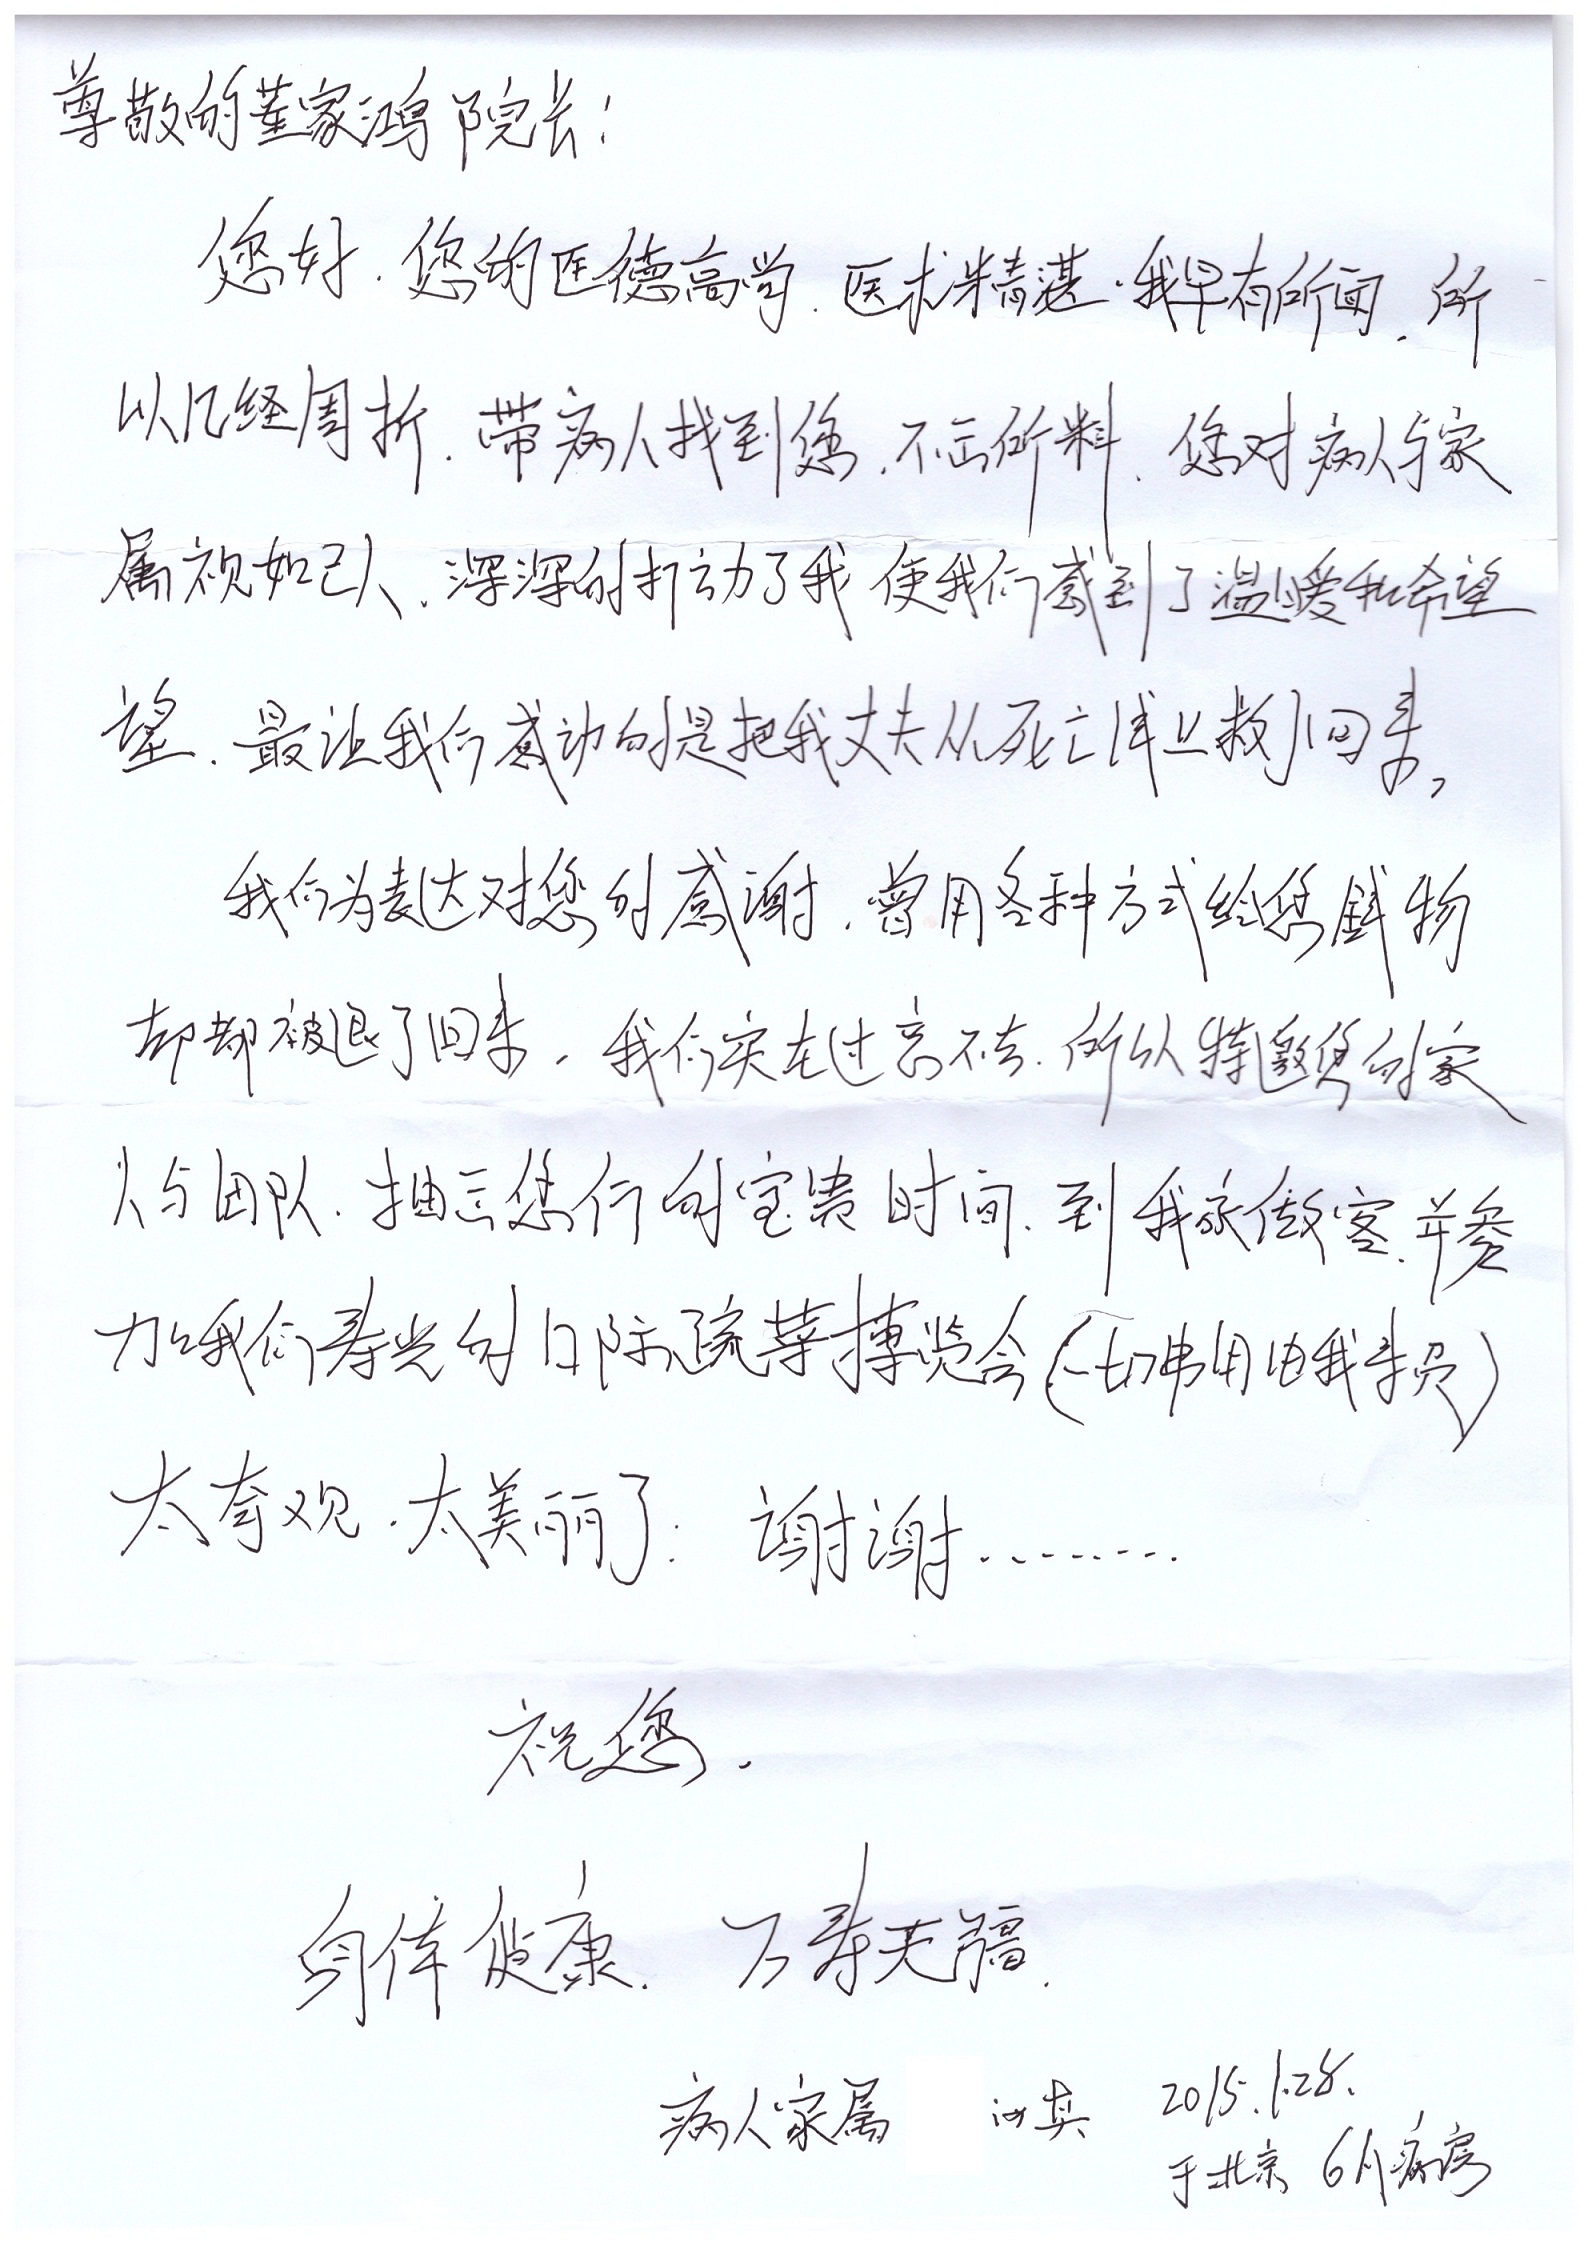 尊敬的董家鸿院长:
您好.您的医德高尚.医术精湛.我早有所闻.所
以几经周折.带病人找到您.不出所料.您对病人与家
属视如己人.深深的打动了我 使我们感到了温暖和希望
望.最让我们感动的是把我丈夫从死亡线上救了回来,
我们为表达对您的感谢.曾用各种方式给您钱物
却都被退了回来.我们实在过意不去.所以特邀您的家
人与团队.抽出您们的宝贵时间.到我家做客.并参
加我们寿光的国际蔬菜博览会(一切费用由我承员)
太奇观.太美丽了.谢谢.........
祝您.
身体健康.万寿无疆.
病人家属 汝英 2015.1.28.
于北京 病房